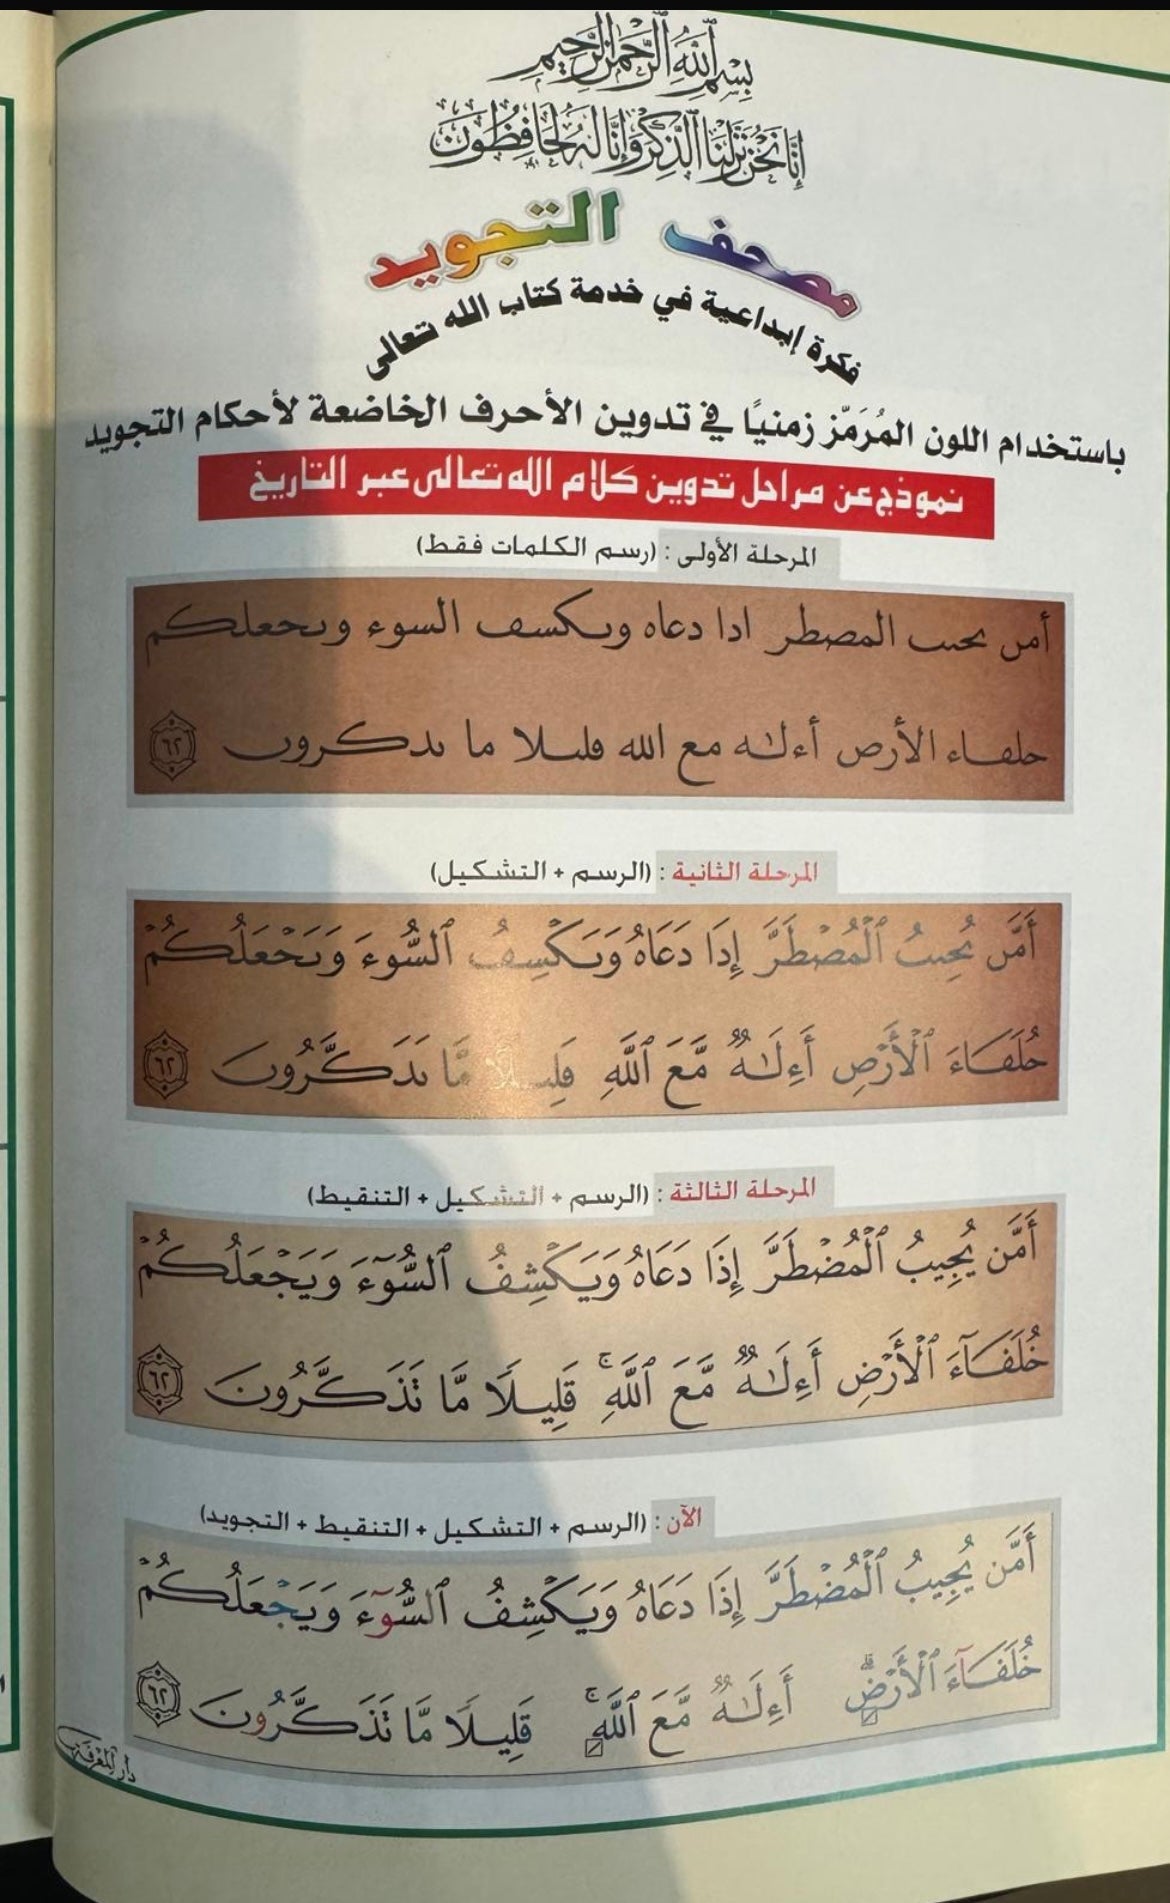 بِسْمِ اللَّهِ الرَّحْمَنِ الرَّحِيمِ
إِنَّا نَحْنُ نَزَّلْنَا الذِّكْرَ وَإِنَّا لَهُ لَحَافِظُونَ
مصحف التجويد
فكرة إبداعية في خدمة كتاب الله تعالى
باستخدام اللون المُرَمّز زمنيًا في تدوين الأحرف الخاضعة لأحكام التجويد
نموذج عن مراحل تدوين كلام الله تعالى عبر التاريخ
المرحلة الأولى : (رسم الكلمات فقط)
أمں ٮحٮٮ المصطر ادا دعاه وٮكسڡ السوء وٮحعلكم
حلڡاء الأرص أءلٰه مع الله ڡلٮلا ما ٮدكروں ٦٢
المرحلة الثانية : (الرسم + التشكيل)
أَمَّں ٮُحِٮٮُ ٱلۡمُصۡطَرَّ إِدَا دَعَاهُ وَٮَكۡسِڡُ ٱلسُّوءَ وَٮَحۡعَلُكُمۡ
حُلَڡَاءَ ٱلۡأَرۡصِ أَءِلَٰهٞ مَّعَ ٱللَّهِ ڡَلِٮلٗا مَّا ٮَدَكَّرُوںَ ٦٢
المرحلة الثالثة : (الرسم + التشكيل + التنقيط)
أَمَّن يُجِيبُ ٱلۡمُضۡطَرَّ إِذَا دَعَاهُ وَيَكۡشِفُ ٱلسُّوٓءَ وَيَجۡعَلُكُمۡ
خُلَفَآءَ ٱلۡأَرۡضِ أَءِلَٰهٞ مَّعَ ٱللَّهِۚ قَلِيلٗا مَّا تَذَكَّرُونَ ٦٢
الآن : (الرسم + التشكيل + التنقيط + التجويد)
أَمَّن يُجِيبُ ٱلۡمُضۡطَرَّ إِذَا دَعَاهُ وَيَكۡشِفُ ٱلسُّوٓءَ وَيَجۡعَلُكُمۡ
خُلَفَآءَ ٱلۡأَرۡضِۗ أَءِلَٰهٞ مَّعَ ٱللَّهِۚ قَلِيلٗا مَّا تَذَكَّرُونَ ٦٢
دار المعرفة